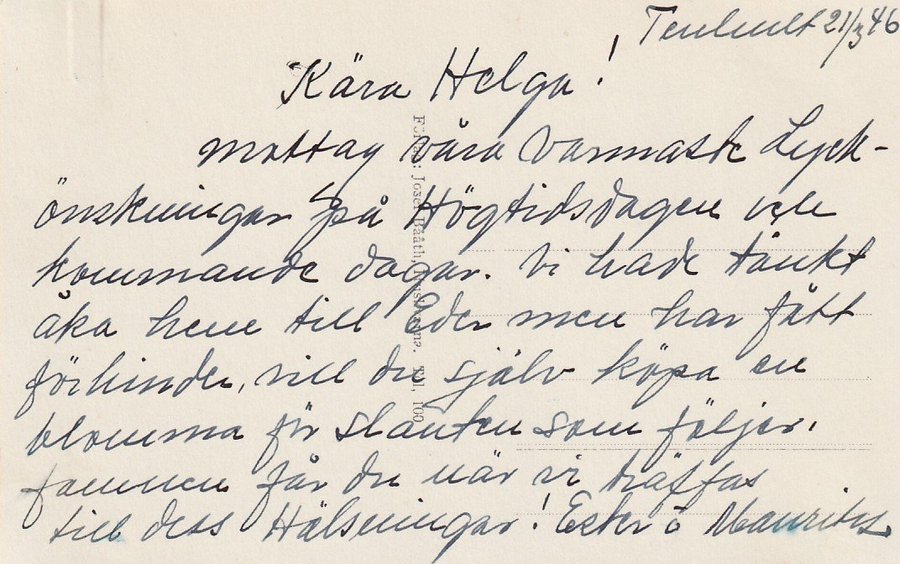 Tenhult 21/3 46
Kära Helga!
mottag våra varmaste Lyck-
önskningar på Högtidsdagen och
kommande dagar. Vi hade tänkt
åka hem till Eder men har fått
förhinder, vill du själv köpa en
blomma för slanten som följer.
famnen får du när vi träffas
till dess Hälsningar! Ester o Mauritz
Förlag: Josef Bååth, Tel. 100